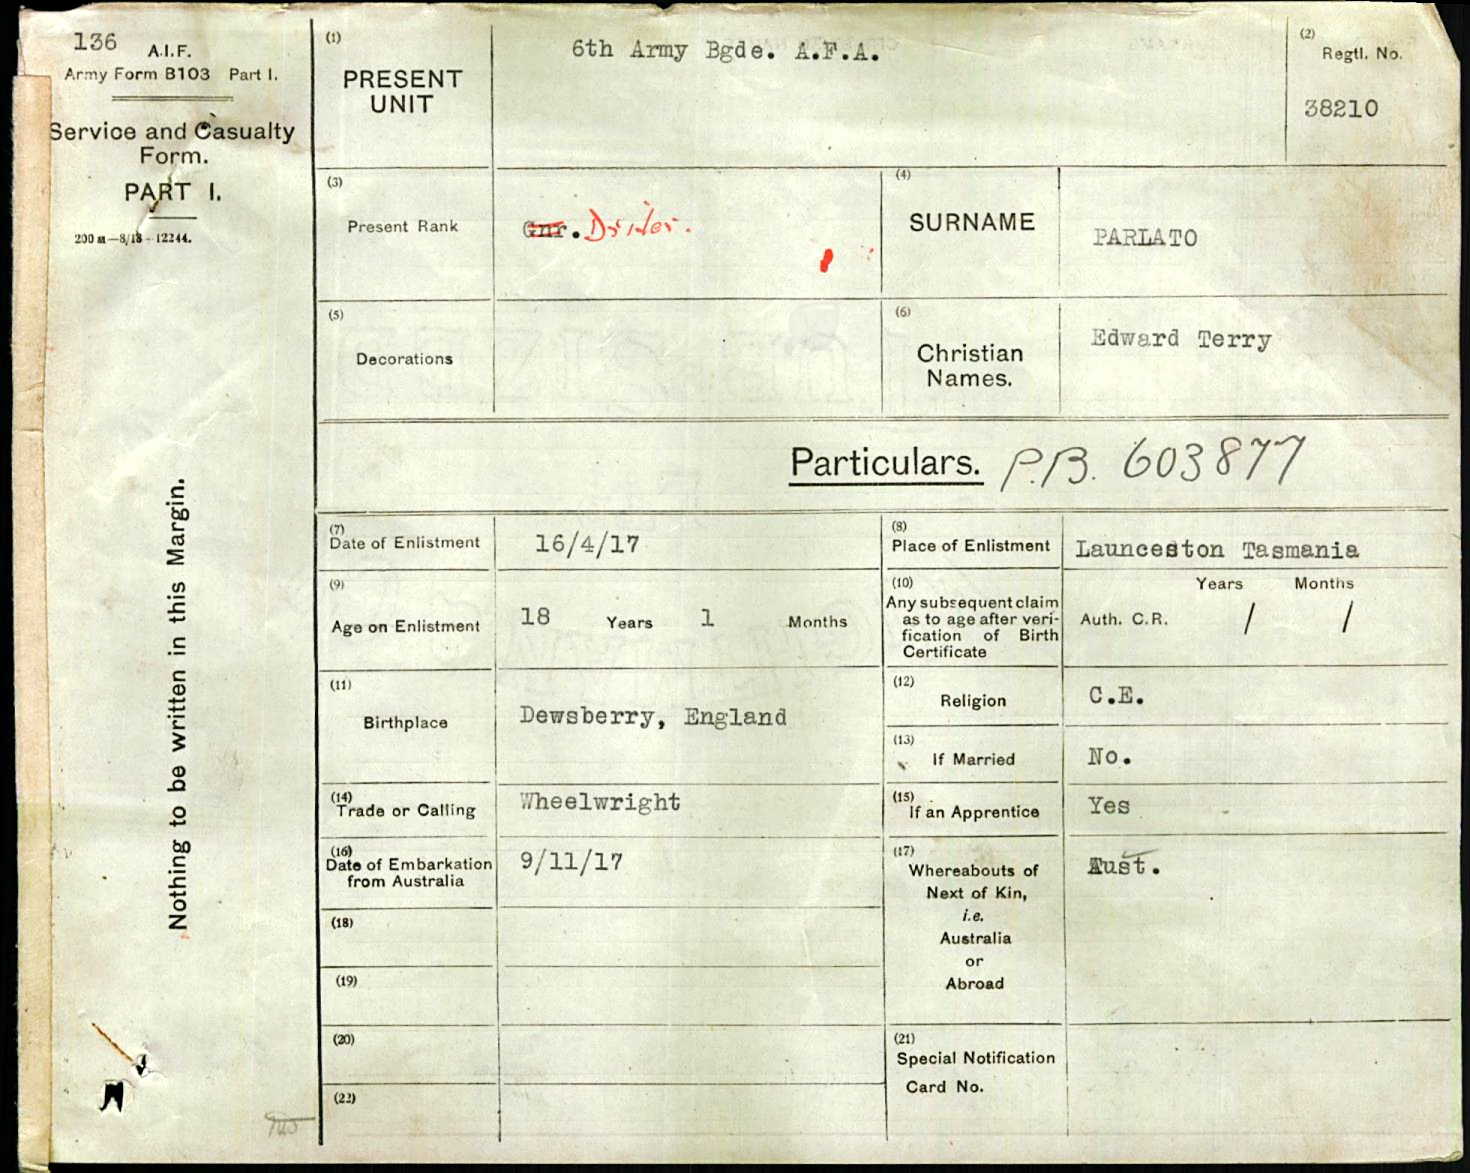 136
A.I.F.
Army Form B103 Part I.
Service and Casualty
Form.
PART I.
200 M—8/18—12244.
Nothing to be written in this Margin.
(1)
PRESENT
UNIT
6th Army Bgde. A.F.A.
(2)
Regtl. No.
38210
(3)
Present Rank
Gnr. Driver.
(4)
SURNAME
PARLATO
(5)
Decorations
(6)
Christian
Names.
Edward Terry
Particulars. P.B. 603877
(7)
Date of Enlistment
16/4/17
(8)
Place of Enlistment
Launceston Tasmania
(9)
Age on Enlistment
18 Years 1 Months
(10)
Any subsequent claim
as to age after veri-
fication of Birth
Certificate
Years Months
Auth. C.R. / /
(11)
Birthplace
Dewsberry, England
(12)
Religion
C.E.
(13)
If Married
No.
(14)
Trade or Calling
Wheelwright
(15)
If an Apprentice
Yes
(16)
Date of Embarkation
from Australia
9/11/17
(17)
Whereabouts of
Next of Kin,
i.e.
Australia
or
Abroad
Aust.
(18)
(19)
(20)
(21)
Special Notification
Card No.
(22)